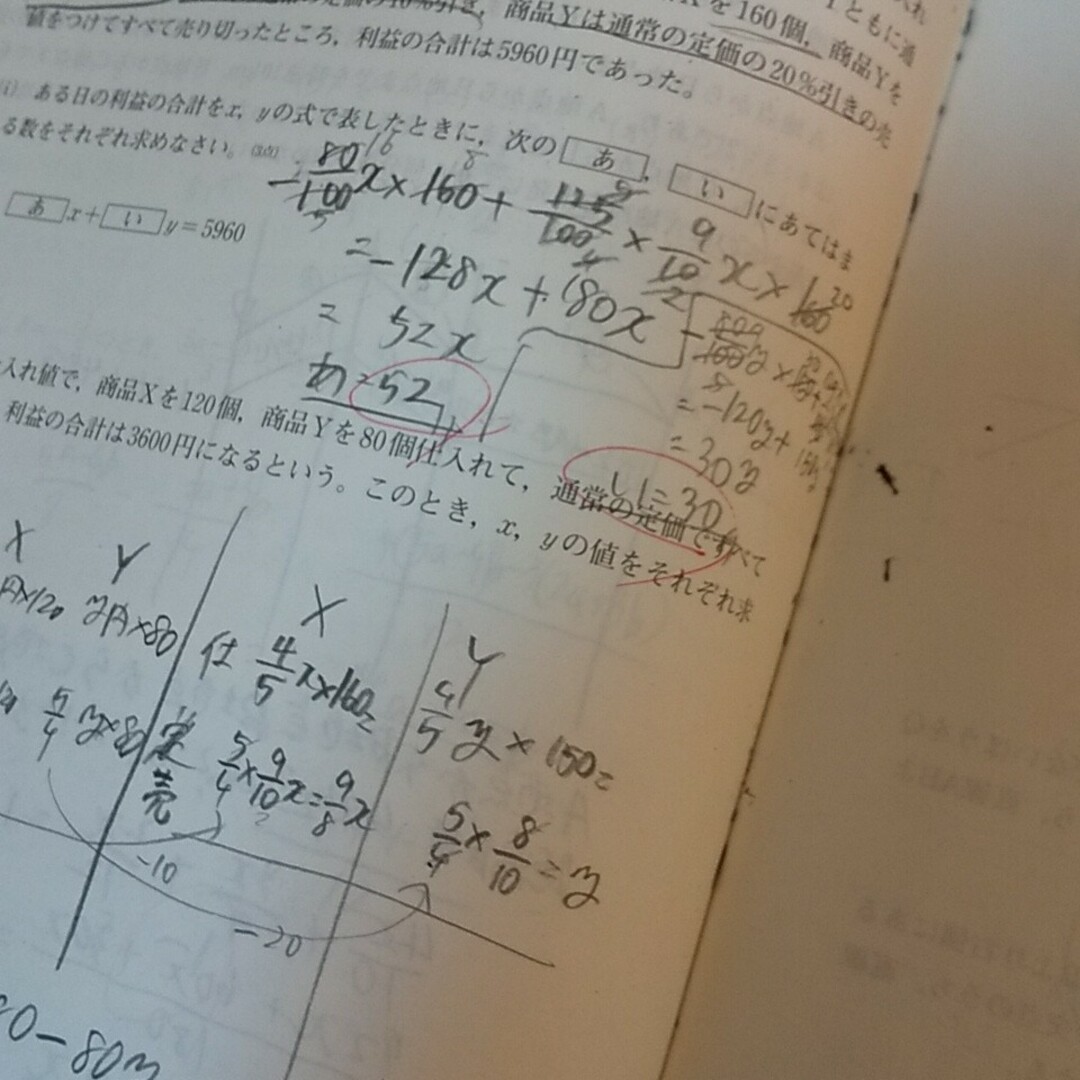 を160個,
ともに通
の定価の10%引き, 商品Yは通常の定価の20%引きの売
商品Yを
値をつけてすべて売り切ったところ, 利益の合計は5960円であった。
ある日の利益の合計をx, yの式で表したときに, 次の あ , い にあてはま
る数をそれぞれ求めなさい。
あ x + い y = 5960
-80/100 x × 160 + 125/100 × 9/10 x × 160
= -128x + 180x
= 52x
あ = 52
= -120y +
= 30y
い = 30
入れ値で, 商品Xを120個, 商品Yを80個仕入れて, 通常の定価ですべて
利益の合計は3600円になるという。このとき, x, yの値をそれぞれ求
X Y
×120 y円×80
5/4 y×80
X
仕 4/5 x×160=
実売 5/4 × 9/10 x = 9/8 x
Y
4/5 y × 150=
5/4 × 8/10 = y
-10
-20
0-80y